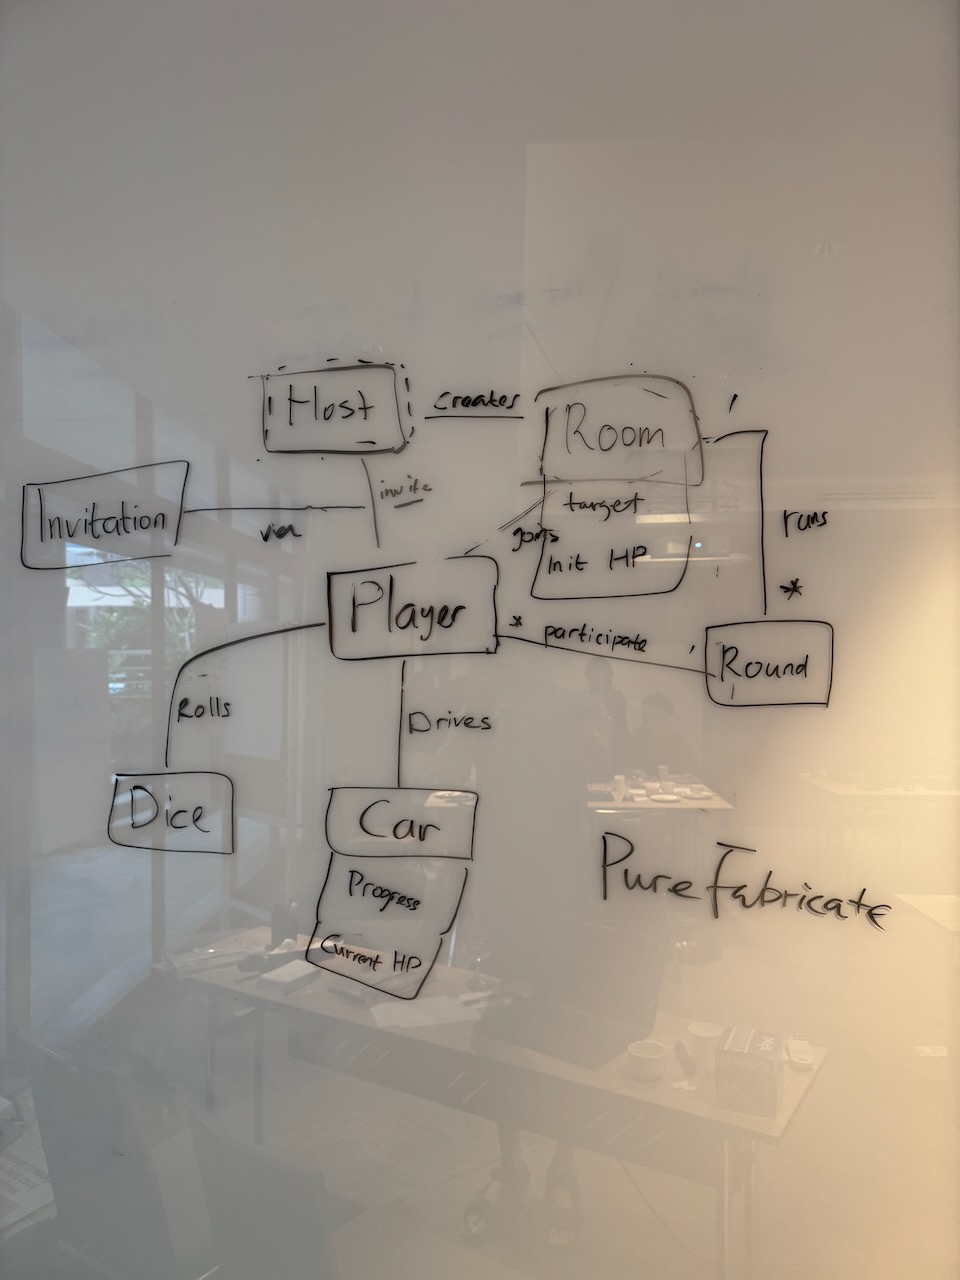 Host
Creates
Room
1
target
Init HP
invite
Invitation
via
joins
runs
*
Player
*
participate
1
Round
Rolls
Drives
Dice
Car
Progress
Current HP
Pure Fabricate